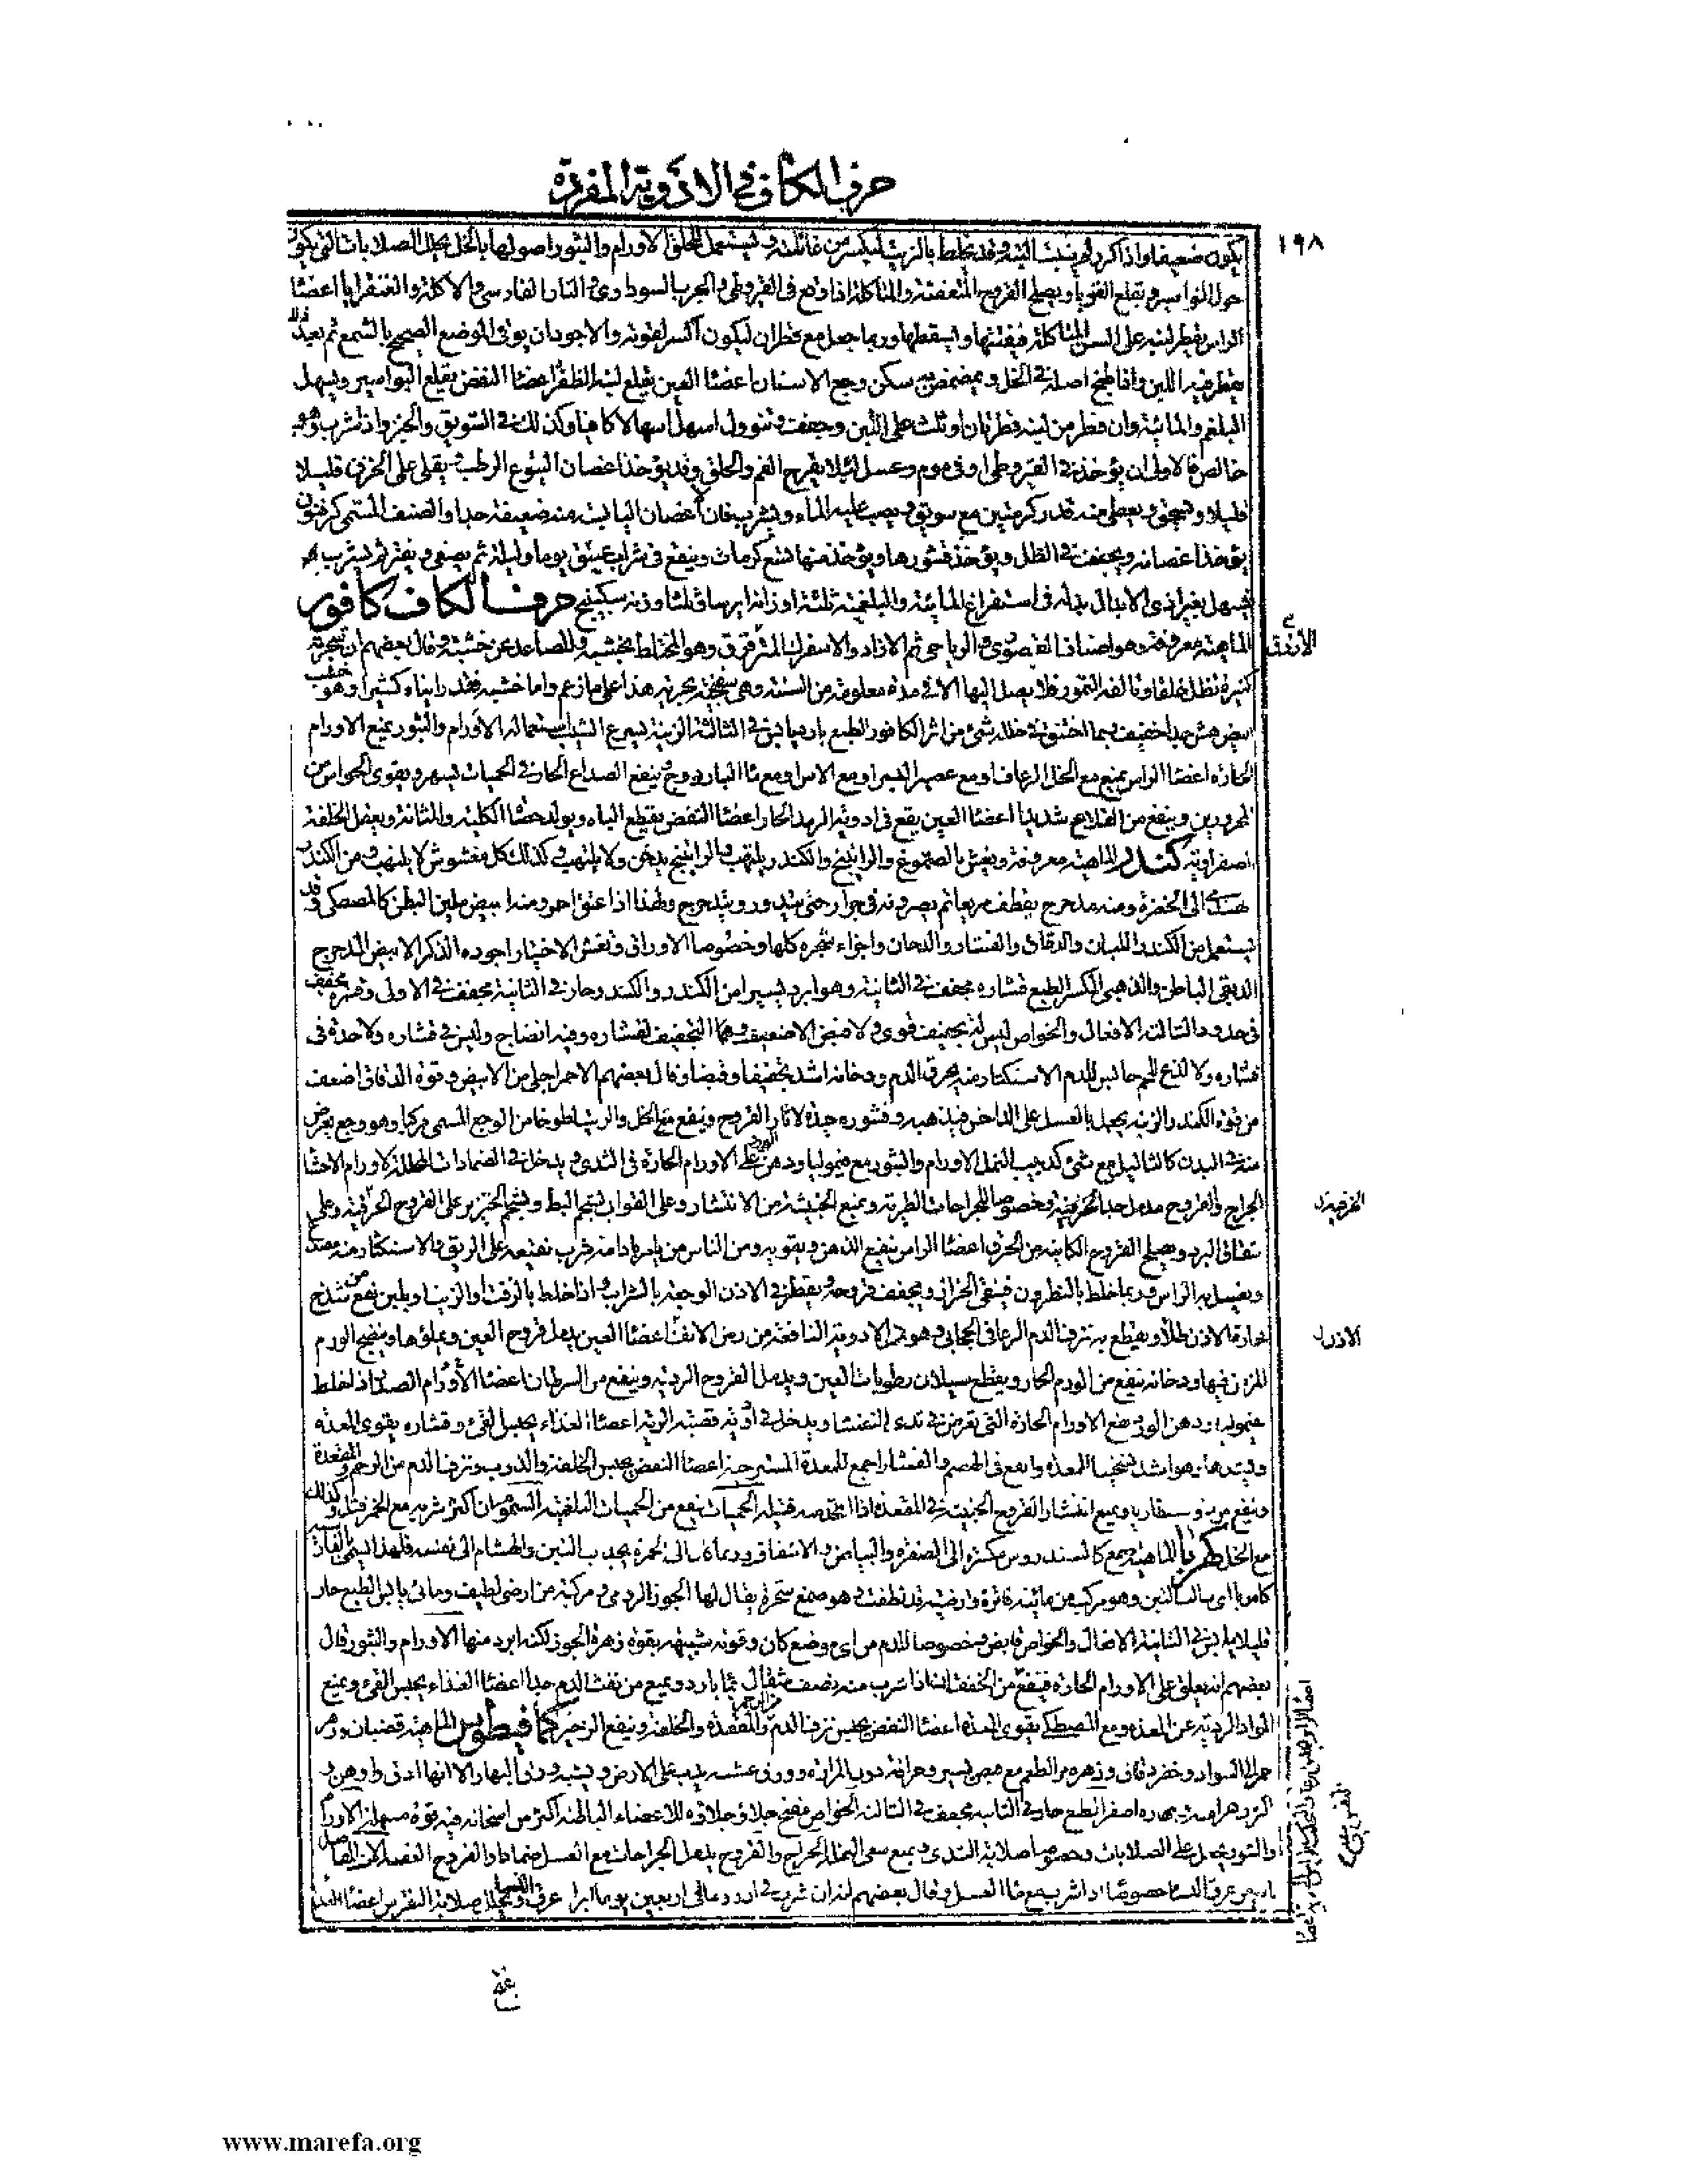 حرف الكاف فى الادوية المفردة
١٩٨
يكون ضعيفا واذا كرر لم ينبت البتة وقد يخلط بالزيت ليكسر من غائلته ويستعمل للحلق الاورام والبثور اصولها بالخل يحلل الصلابات التى تكون
حول النواسير ويقلع القوبا ويصلح القروح المتعفنة والمتأكلة اذا وقع فى القيروطى والجرب السوداوى والنار الفارسى والاكلة والغنغرايا اعضا
الراس يقطر لبنه على السن المتأكلة فيفتتها ويسقطها وربما جعل مع قطران ليكون اكسر لقوته والاجود ان يوقى الموضع الصحيح بالشمع ثم بعد ذلك
يقطر فيه اللبن واذا طبخ اصله فى الخل ويمضمض به سكن وجع الاسنان اعضا العين يقلع لبنه الظفرة اعضا النفض يقلع البواسير ويسهل
البلغم والمائية وان قطر من لبنه قطرتان او ثلث على التين وجفف وتنوول اسهل اسهالا كافيا وكذلك فى السويق والخبز واذا شرب وهو
خالص فالاولى ان يؤخذ فى القيروطى او فى موم وعسل لئلا يقرح الفم والحلق وقد يؤخذ اغصان اليتوع الرطب ويقلى على الخزف قليلا
قليلا ويسحق ويعطى منه قدر كرمتين مع سويق ويصب عليه الماء ويشرب فان اغصان اليابسة منه ضعيفة جدا والصنف المسمى
يؤخذ اغصانه ويجفف فى الظل ويؤخذ قشورها ويؤخذ منها تسع كرمات وينقع فى شراب عتيق يوما وليلة ثم يصفى ويفتر ثم يشرب
فيسهل بغير اذى الابدال بدله فى استفراغ المائية والبلغمية ثلثة اوزانه ايرسا وثلثا وزنه سكبينج حرف الكاف كافور
الماهية معروفة وهو اصناف القيصورى والرياحى ثم الازاد والاسفرك الازرق وهو المختلط بخشبه والمصاعد عن خشبه وقال بعضهم ان شجرته
كبيرة تظل خلقا وتألفه النمورة فلا يصل اليها الا فى مدة معلومة من السنة وهى سفحية بحرية هذا على ما زعم واما خشبه فقد رايناه كثيرا وهو خشب
ابيض هش جدا خفيف ربما اختنق فى خلله شئ من اثر الكافور الطبع بارد يابس فى الثالثة الزينة يسرع الشيب استعماله الاورام والبثور يمنع الاورام
الحارة اعضا الراس يمنع مع الخل الرعاف او مع عصير البسر او مع الاس او مع ما الباذروج وينفع الصداع الحار فى الحميات ويسهر ويقوى الحواس من
المحرورين وينفع من القلاع شديدا اعضا العين يقع فى ادوية الرمد الحار اعضا النفض يقطع الباه ويولد حصا الكلية والمثانة ويعقل الخلفة
الصفراوية كندر الماهية معروفة ويغش بالصموغ والراتينج والكندر يلتهب والراتينج يدخن ولا يلتهب وكذلك كل مغشوش لا يلتهب ومن الكندر
هندى الى الخضرة ومنه مدحرج يقطف مربعا ثم يصرونه فى جرار حتى يتدور ويتدحرج وهذا اذا عتق احمر ومنه ابيض يلين البطن كالمصطكى وقد
يستعمل من الكندر اللبان والدقاق والقشار والدخان واجزاء شجره كلها وخصوصا الاوراق ويغش الاختيار اجوده الذكر الابيض المدحرج
الدبقى الباطن والذهبى المكسر الطبع قشاره مجفف فى الثانية وهو ابرد يسيرا من الكندر والكندر حار فى الثانية مجفف فى الاولى وقشره مجفف
فى حدود الثالثة الافعال والخواص ليس له تجفيف قوى ولا قبض الا ضعيف وهما التجفيف لقشاره وفيه انضاج وليس فى قشاره ولا حدة فى
قشاره ولا لذع للحم حابس للدم الاستكثار منه يحرق الدم ودخانه اشد تجفيفا وقبضا وقال بعضهم الاحمر اجلى من الابيض وقوة الدقاق اضعف
من قوة الكندر الزينة يجعل بالعسل على الداحس فيذهبه وقشوره جيدة لاثار القروح وينفع مع الخل والزيت لطوخا من الوجع المسمى مركبا وهو وجع يعرض
منه فى البدن كالثاليل مع شئ كدبيب النمل الاورام والبثور مع قيموليا ودهن الورد على الاورام الحارة فى الثدى ويدخل فى الضمادات المحللة لاورام الاحشا
الجراح والقروح مدمل جدا وخصوصا للجراحات الطرية ويمنع الخبيثة من الانتشار وعلى القوابى بشحم البط وبشحم الخنزير على القروح الحرفية وعلى
شقاق البرد ويصلح القروح الكاينة من الحرق اعضا الراس ينفع الذهن ويقويه ومن الناس من يامر بادامة شرب نقيعه على الريق والاستكثار منه مصدع
ويغسل به الراس وربما خلط بالنطرون فينقى الحزاز ويجفف قروحه ويقطر فى الاذن الوجعة بالشراب واذا خلط بالزفت او الزيت او بلبن نفع من شدخ
محارة الاذن طلاء ويقطع به نزف الدم الرعافى الحجابى وهو من الادوية النافعة من رض الانف اعضا العين يدمل قروح العين ويملؤها وينضج الورم
المزمن فيها ودخانه ينفع من الورم الحار ويقطع سيلان رطوبات العين ويدمل القروح الردية وينفع من السرطان اعضا الصدر اذا خلط
بقيموليا ودهن الورد نفع الاورام الحارة التى تعرض فى ثدى النفسا ويدخل فى ادوية قصبة الرية اعضا الغذاء يحبس القئ وقشاره يقوى المعدة
ويشدها وهو اشد تسخينا للمعدة وانفع فى الهضم والقشار اجمع للمعدة المسترخية اعضا النفض يحبس الخلفة والذرب ونزف الدم من الرحم والمقعدة
وينفع من دوسنطاريا ويمنع انتشار القروح الخبيثة فى المقعدة اذا اتخذت منه فتيلة الحميات ينفع من الحميات البلغمية السموم ان اكثر شربه مع الخمر قتل وكذلك
مع الخل كهربا الماهية صمع كالسندروس مكسره الى الصفرة والبياض والاشفاف وربما كان الى الحمرة يجذب التبن والهشيم الى نفسه فلهذا يسمى بالفارسية
كاه ربا اى سالب التبن وهو مركب من مائية فاترة وارضية قد تلطفت وهو صمغ شجرة يقال لها الجوز الرومى وهو مركبة من ارضى لطيف ومائى يابس الطبع حار
قليلا يابس فى الثانية الافعال والخواص قابض وخصوصا للدم من اى موضع كان وقوته شبيهة بقوة زهرة الجوز لكنه ابرد منها الاورام والبثور قال
بعضهم انه يعلق على الاورام الحارة فينفع من الخفقان اذا شرب منه نصف مثقال بما بارد ويمنع من نفث الدم جدا اعضا الغذاء يحبس القئ ويمنع
المواد الردية عن المعدة ومع المصطكى يقوى المعدة اعضا النفض يحبس نزف الدم من الرحم والمقعدة والخلفة وينفع الزحير كمافيطوس الماهية قضبان وزهر
حمر الى السواد وخضر دقاق وزهره مر الطعم مع قبض يسير وحرافة دون المرارة وورق عشبه يدب على الارض ويشبه ورق البهار الا انها ادق
اصفر الطبع حار فى الثانية مجفف فى الثالثة الخواص مفتح جلاء وجلاؤه للاعضاء الباطنة اكثر من اسخانه فيه قوة مسهلة الاورام
والبثور يجعل على الصلابات وخصوصا صلابة الثدى ويمنع سعى النملة الجراح والقروح يدمل الجراحات مع العسل ضمادا والقروح العفنة الات المفاصل
ينفع من عرق النسا خصوصا اذا شرب مع ما العسل وقال بعضهم انه ان شرب فى ادرومالى اربعين يوما ابرا عرق النسا ويحلل صلابة النقرس اعضا
www.marefa.org